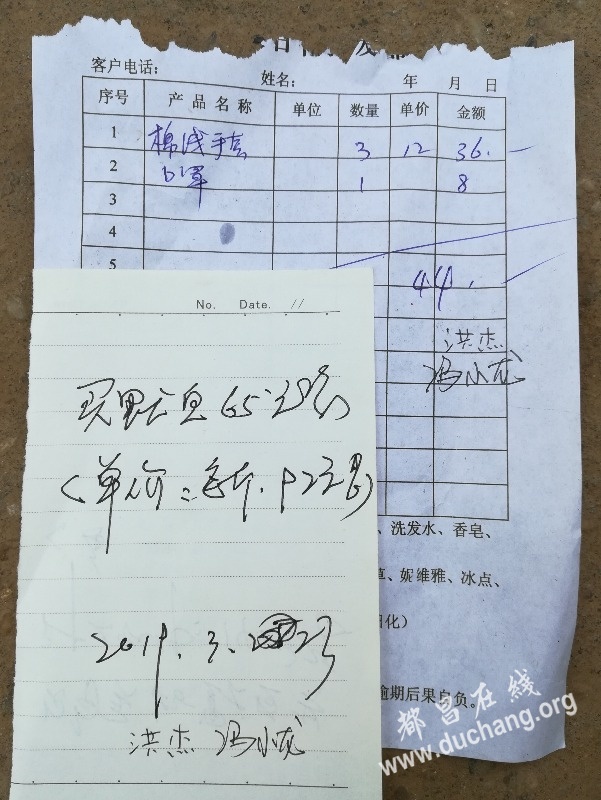 客户电话: 姓名: 年 月 日
序号 产品名称 单位 数量 单价 金额
1 棉线手套 3 12 36.
2 口罩 1 8
3
4
5 44.
洪杰
冯小龙
No. Date. //
买野大鱼
(单价:每斤.
2019.3. 23
洪杰 冯小龙
、洗发水、香皂、
、妮维雅、冰点、
日化)
逾期后果自负。
都昌在线
www.duchang.org